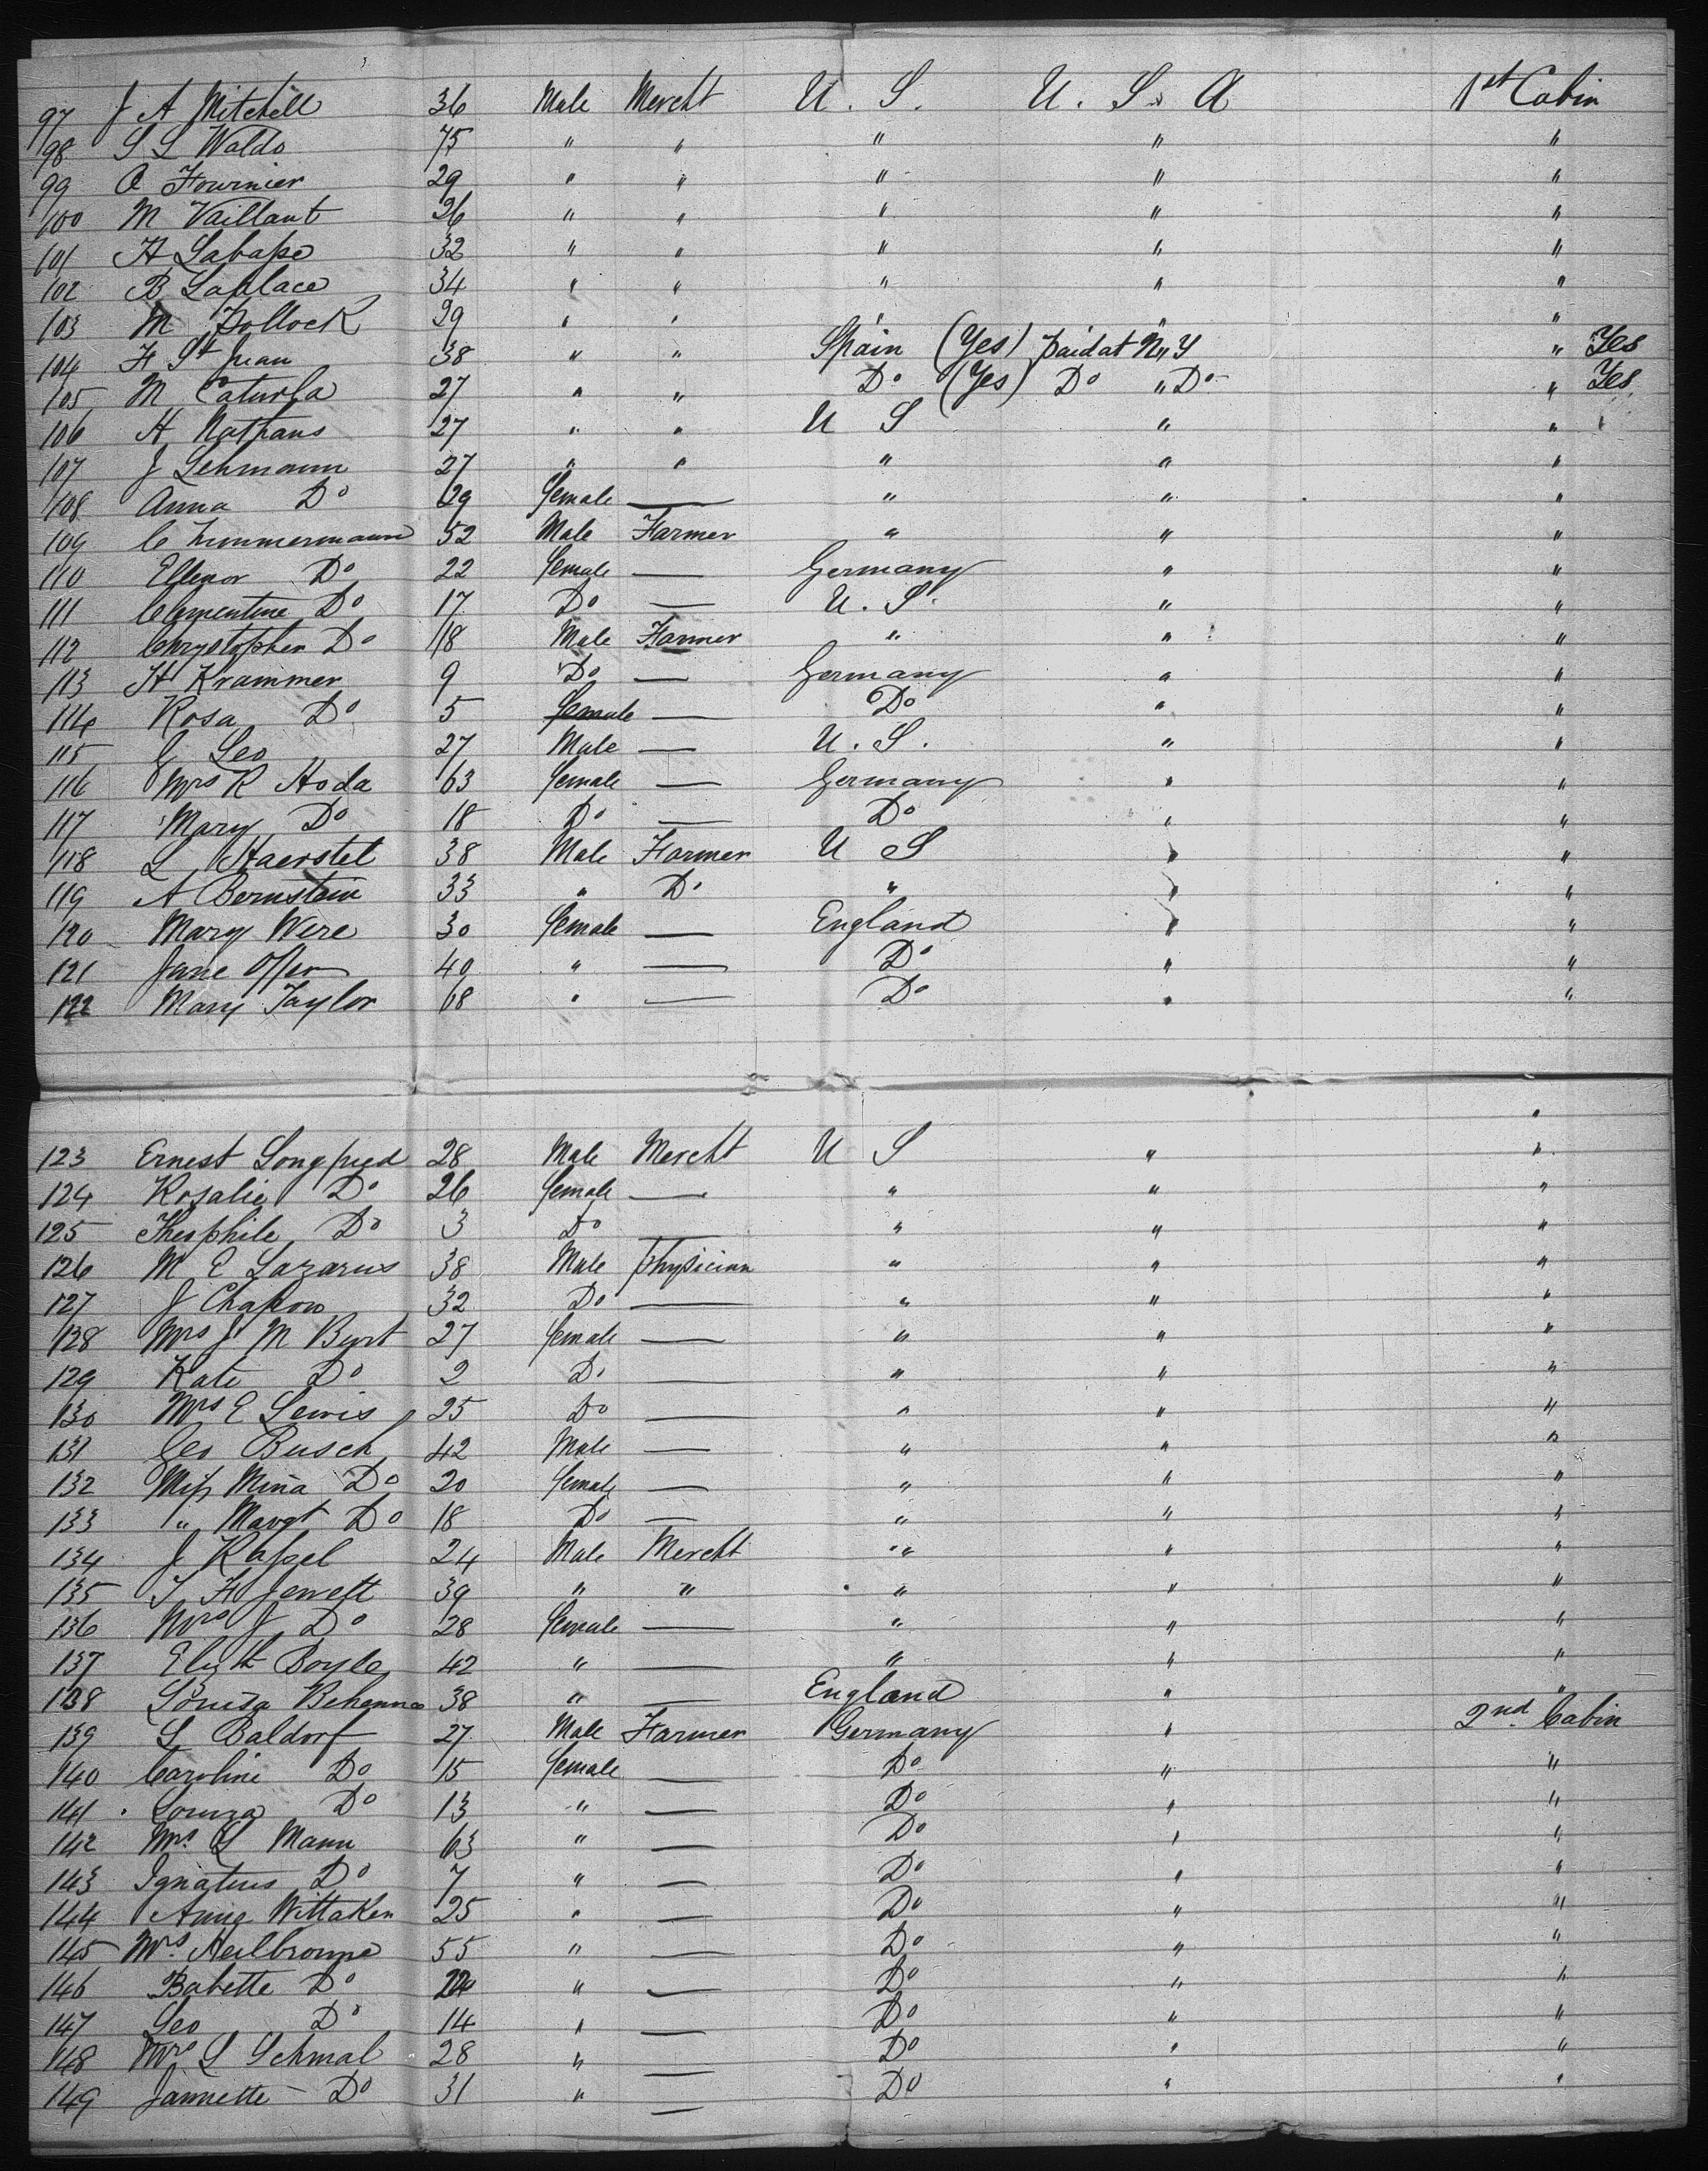 97 J A Mitchell 36 Male Mercht U. S. U. S. A 1st Cabin
98 S L Waldo 75 " " " " "
99 A Fournier 29 " " " " "
100 M Vaillant 26 " " " " "
101 H Labasse 32 " " " " "
102 B Laplace 34 " " " " "
103 M Pollock 29 " " " " "
104 F St Juan 38 " " Spain (Yes) paid at N " Y " Yes
105 M Caturla 27 " " Do (Yes) Do " Do " Yes
106 H Nathans 27 " " U S " "
107 J Lehmann 27 " " " " "
108 Anna Do 29 female — " " "
109 C Zimmermann 52 Male Farmer " " "
110 Ellenor Do 22 female — Germany " "
111 Clementine Do 17 Do — U. S. " "
112 Chrystopher Do 18 Male Farmer " " "
113 H Krammer 9 Do — Germany " "
114 Rosa Do 5 female — Do " "
115 Leo 27 Male — U. S. " "
116 Mrs R Hoda 63 female — Germany " "
117 Mary Do 18 Do — Do " "
118 L Haerstel 38 Male Farmer U S " "
119 A Bernstein 33 " Do " " "
120 Mary Were 30 female — England " "
121 Jane 40 " — Do " "
122 Mary Taylor 68 " — Do " "
"
123 Ernest Longpied 28 Male Mercht U S " "
124 Rosalie Do 26 female — " " "
125 Theophile Do 3 Do — " " "
126 M E Lazarus 38 Male physician " " "
127 J Chapow 32 Do — " " "
128 Mrs J M Burt 27 female — " " "
129 Kate Do 2 Do — " " "
130 Mrs E Lewis 25 Do — " " "
131 Geo Busch 42 Male — " " "
132 Miss Mina Do 20 female — " " "
133 " Margt Do 18 Do — " " "
134 J Kassel 24 Male Mercht " " "
135 T H Jewett 39 " " " " "
136 Mrs J Do 28 female — " " "
137 Elizth Boyle 42 " — " " "
138 Louisa Behenna 38 " — England " "
139 L Baldorf 27 Male Farmer Germany " 2nd Cabin
140 Caroline Do 15 female — Do " "
141 Louiza Do 13 " — Do " "
142 Mrs L Mann 63 " — Do " "
143 Ignatius Do 7 " — Do " "
144 Anna Wittaken 25 " — Do " "
145 Mrs Heilbronne 55 " — Do " "
146 Babette Do " — Do " "
147 Leo Do 14 " — Do " "
148 Mrs L Schmal 28 " — Do " "
149 Jannette Do 31 " — Do " "